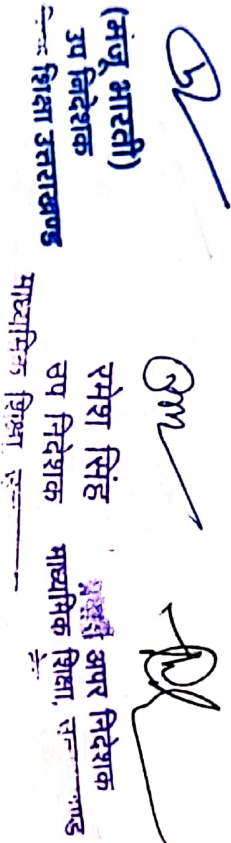 (मंजू भारती)
उप निदेशक
शिक्षा उत्तराखण्ड
रमेश सिंह
उप निदेशक
माध्यमिक शिक्षा
अपर निदेशक
माध्यमिक शिक्षा,